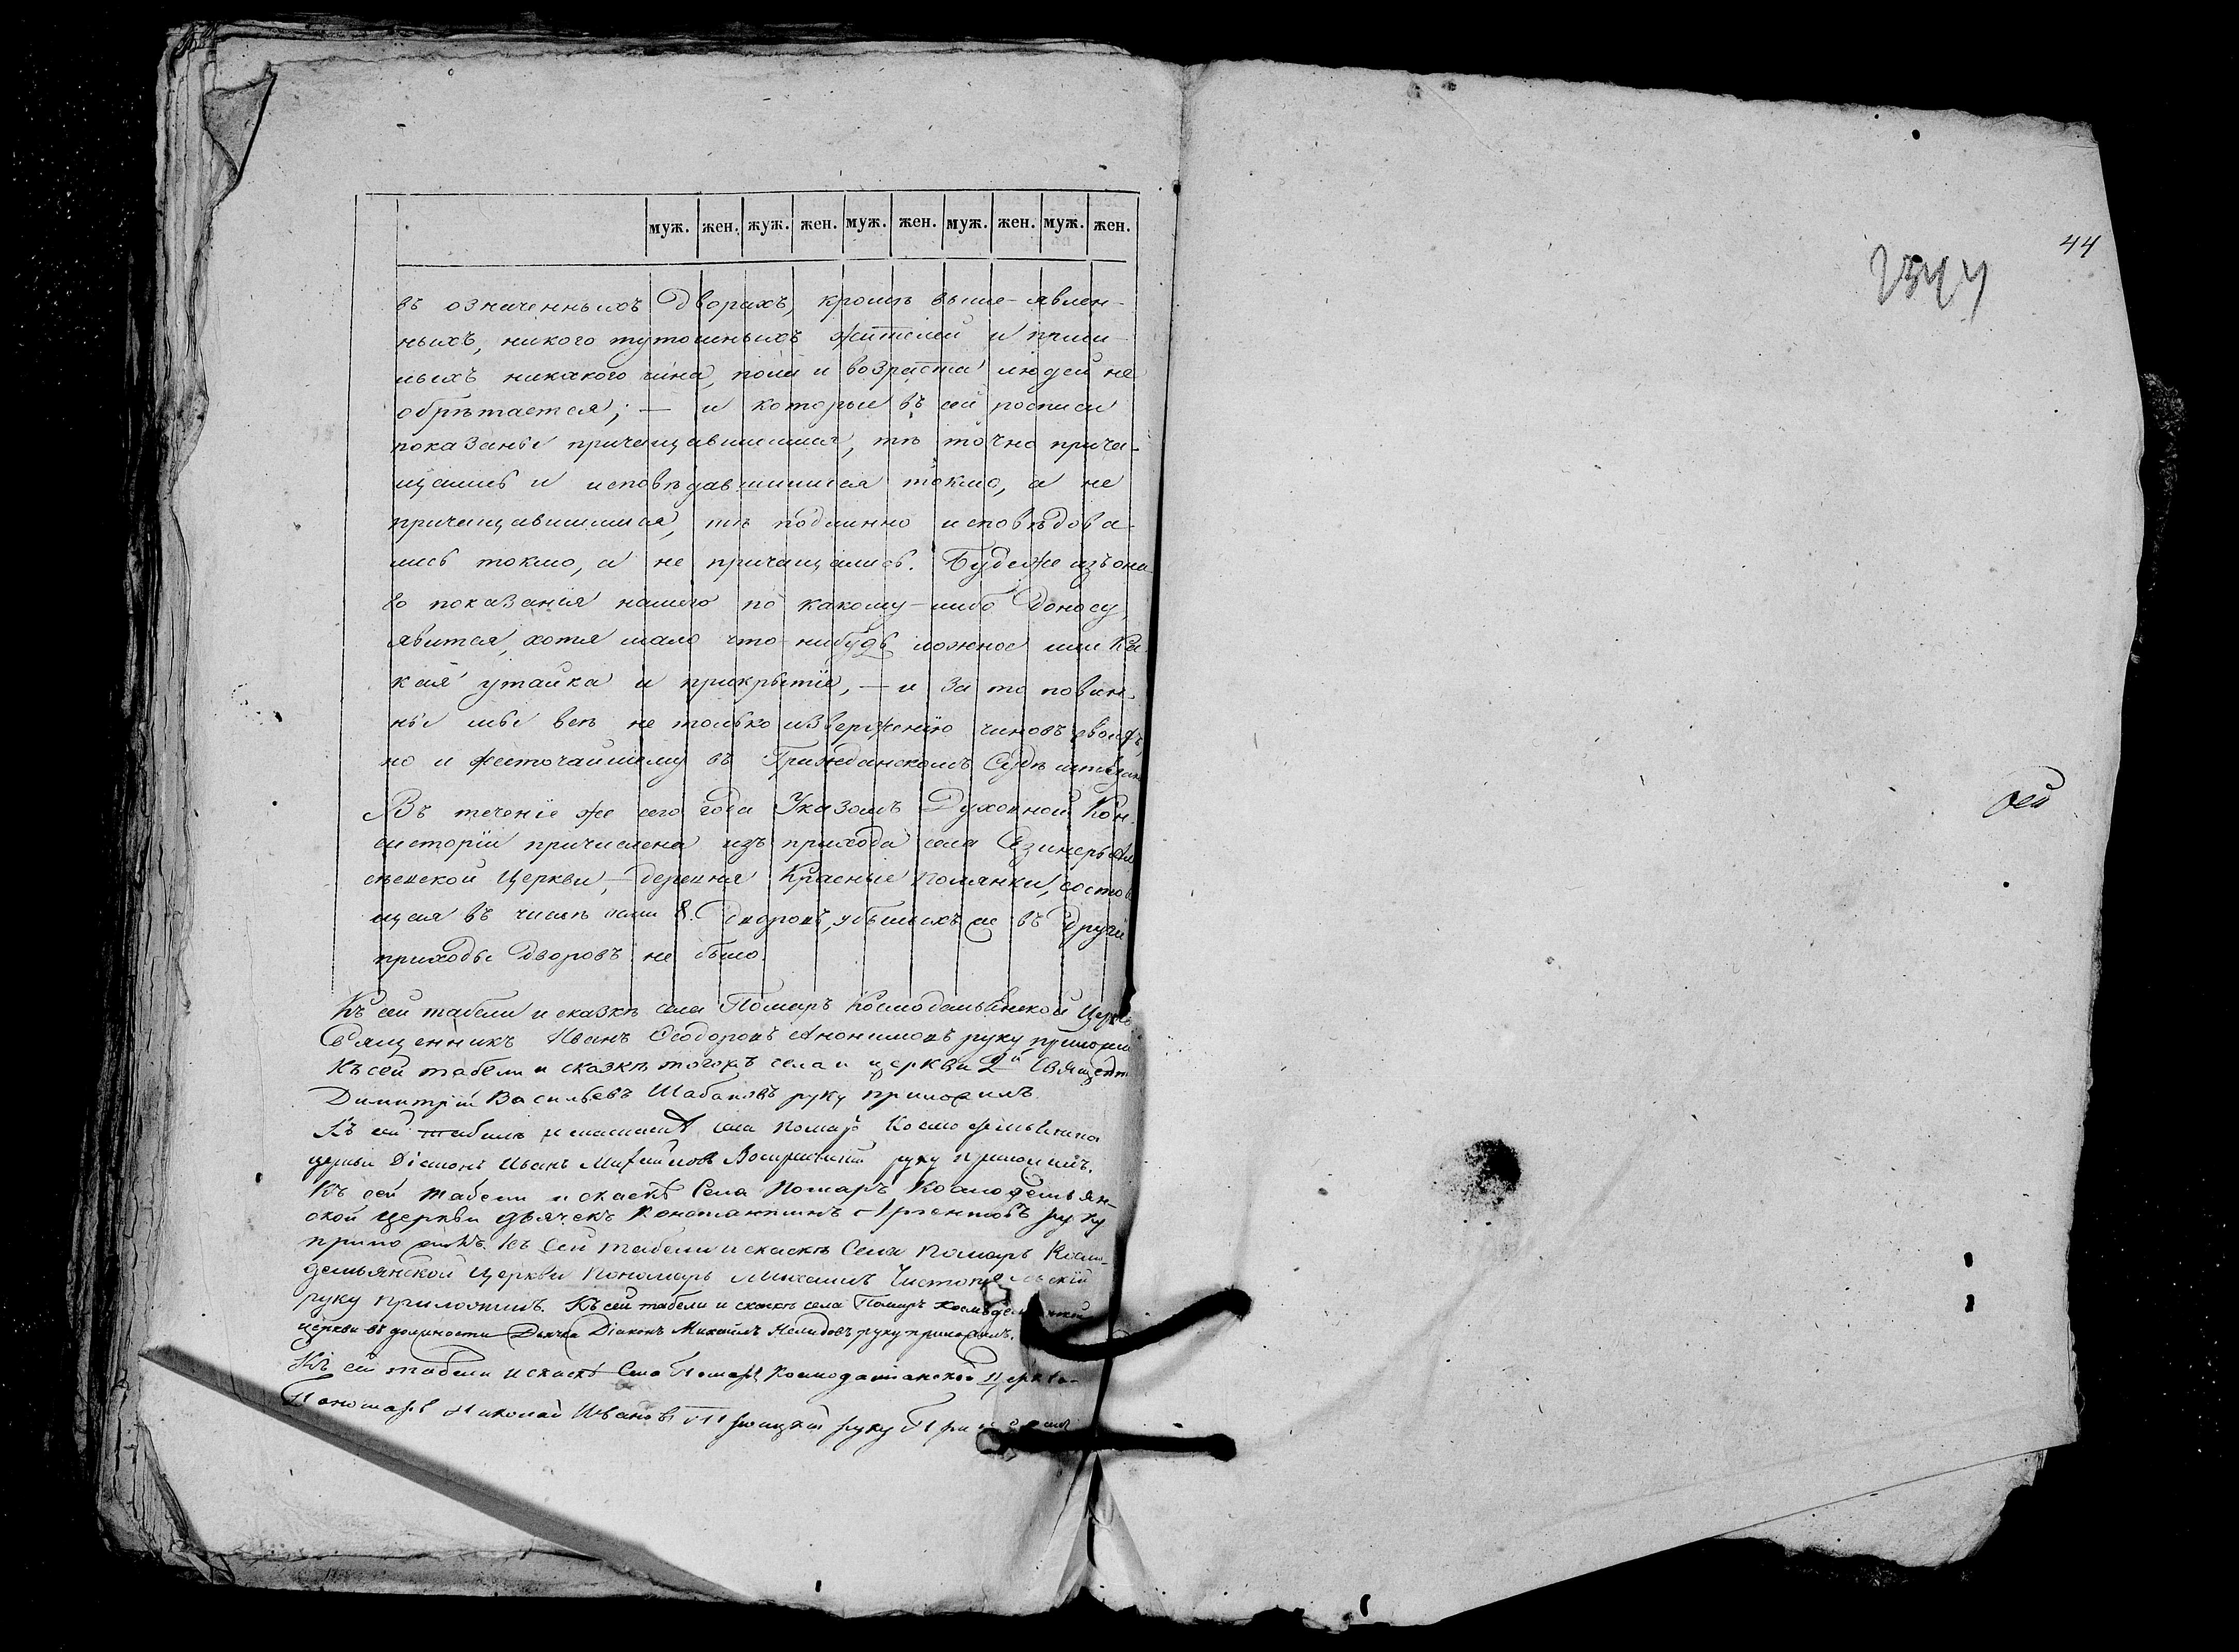 муж. жен. жуж. жен. муж. жен. муж. жен. муж. жен.
въ означенныхъ Дворахъ, кромѣ выше-явлен-
ныхъ, никого тутошныхъ жителей и пришл
ыхъ никакого чина, пола и возраста людей не
обрѣтается; — и которые въ сей росписи
показаны причащавшимися, тѣ точно прича-
щались и исповѣдавшимися токмо, а не
причащавшимися, тѣ подлинно исповѣдова-
лись токмо, а не причащались. Будеже изъ она
го показанія нашего по какому-либо Доносу,
явится, хотя мало что-нибудь ложное или Ка
кая утайка и прикрытіе, — и за то повин-
ны мы всѣ не только изверженію чиновъ своихъ,
но и жесточайшему въ Гражданскомъ Судѣ
Въ теченіе же сего года Указомъ Духовной Кон-
систоріи причислена изъ прихода села
Церкви, — деревня Красные Полянки, состо
щая въ числѣ 8. Дворовъ, убылыхъ же въ Другіе
приходы Дворовъ не было.
Къ сей табели и сказкѣ села Помаръ Космодемьянской Церкви
Священникъ Иванъ Ѳеодоровъ Анонимовъ руку приложи
Къ сей табели и сказкѣ тогожъ села и церкви 2й Священ
Димитрій Васильевъ Шабановъ руку приложилъ.
Къ сей табели и села Помаръ
церкви Діаконъ Иванъ Михайловъ руку приложилъ.
Къ сей табели и сказкѣ Села Помаръ Космодемьян-
ской Церкви дьячекъ Константинъ руку
приложилъ. Къ Сей табели и сказкѣ Села Помаръ Косма-
демьянской Церкви Пономарь Михаилъ Чистопольскій
руку приложилъ. Къ сей табели и сказкѣ села Помаръ
церкви въ должности Дьячка Діаконъ Михаилъ руку приложилъ.
Къ сей табели и сказкѣ Села Помаръ Космодаміанской Церкви
Пономарь Николай Ивановъ Троицкій руку приложилъ
44